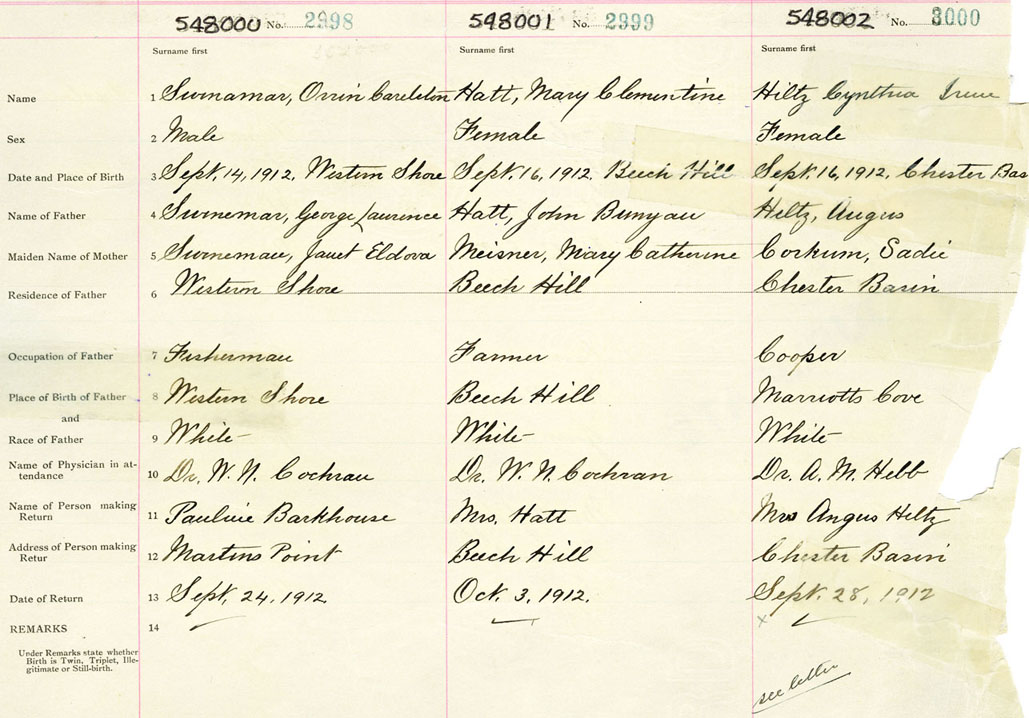 548000 No. 2998 548001 No. 2999 548002 No. 3000
Surname first Surname first Surname first
Name 1 Swinamar, Orrin Careleton Hatt, Mary Clementine Hiltz Cynthia Irene
Sex 2 Male Female Female
Date and Place of Birth 3 Sept. 14, 1912. Western Shore Sept. 16, 1912. Beech Hill Sept. 16, 1912. Chester Bas
Name of Father 4 Swinemar, George Laurence Hatt, John Bunyan Hiltz, Angus
Maiden Name of Mother 5 Swinemar, Janet Eldova Meisner, Mary Catherine Corkum, Sadie
Residence of Father 6 Western Shore Beech Hill Chester Basin
Occupation of Father 7 Fisherman Farmer Cooper
Place of Birth of Father 8 Western Shore Beech Hill Marriotts Cove
and
Race of Father 9 White White White
Name of Physician in at-
tendance 10 Dr. W. N. Cochran Dr. W. N. Cochran Dr. A. M. Hebb
Name of Person making
Return 11 Pauline Barkhouse Mrs. Hatt Mrs Angus Hiltz
Address of Person making
Retur 12 Martins Point Beech Hill Chester Basin
Date of Return 13 Sept. 24, 1912. Oct. 3, 1912. Sept. 28, 1912
REMARKS 14
x
Under Remarks state whether
Birth is Twin, Triplet, Ille-
gitimate or Still-birth.
see letter